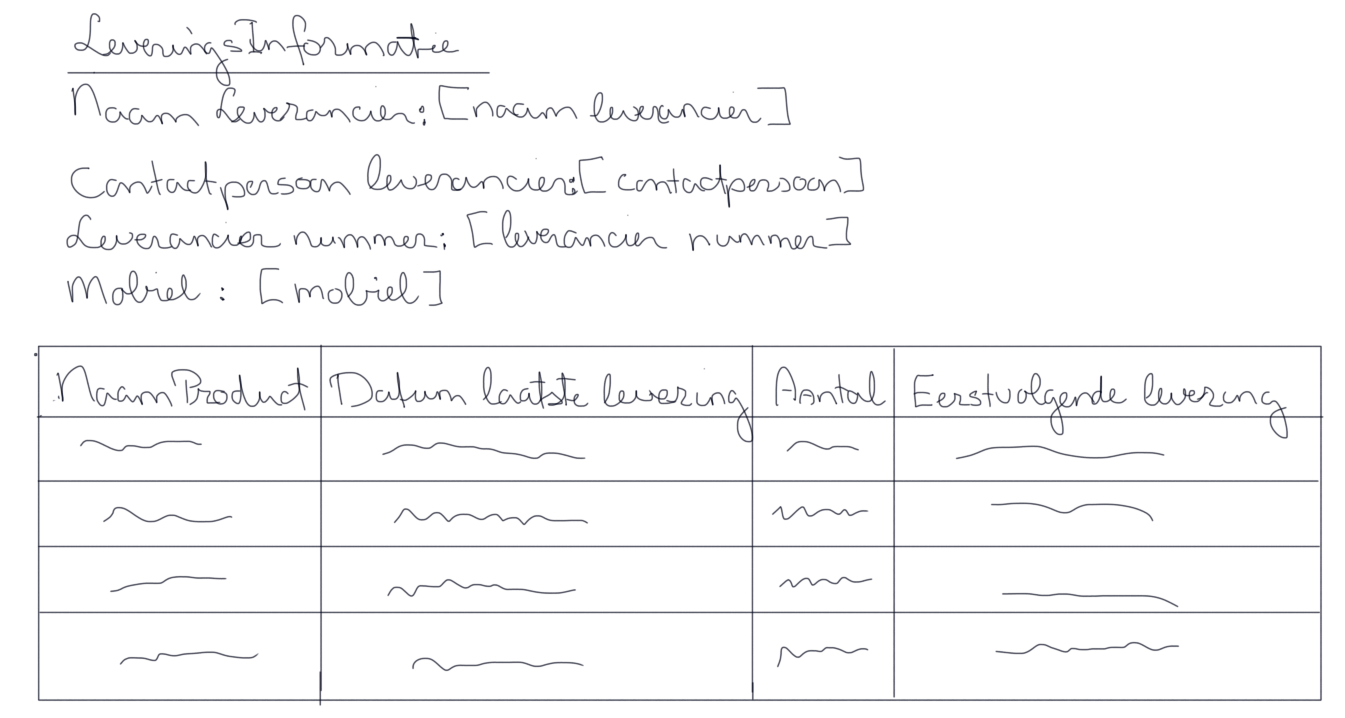 LeveringsInformatie
Naam Leverancier: [naam leverancier]
Contactpersoon leverancier: [contactpersoon]
Leverancier nummer: [leverancier nummer]
Mobiel : [mobiel]
Naam Product Datum laatste levering Aantal Eerstvolgende levering